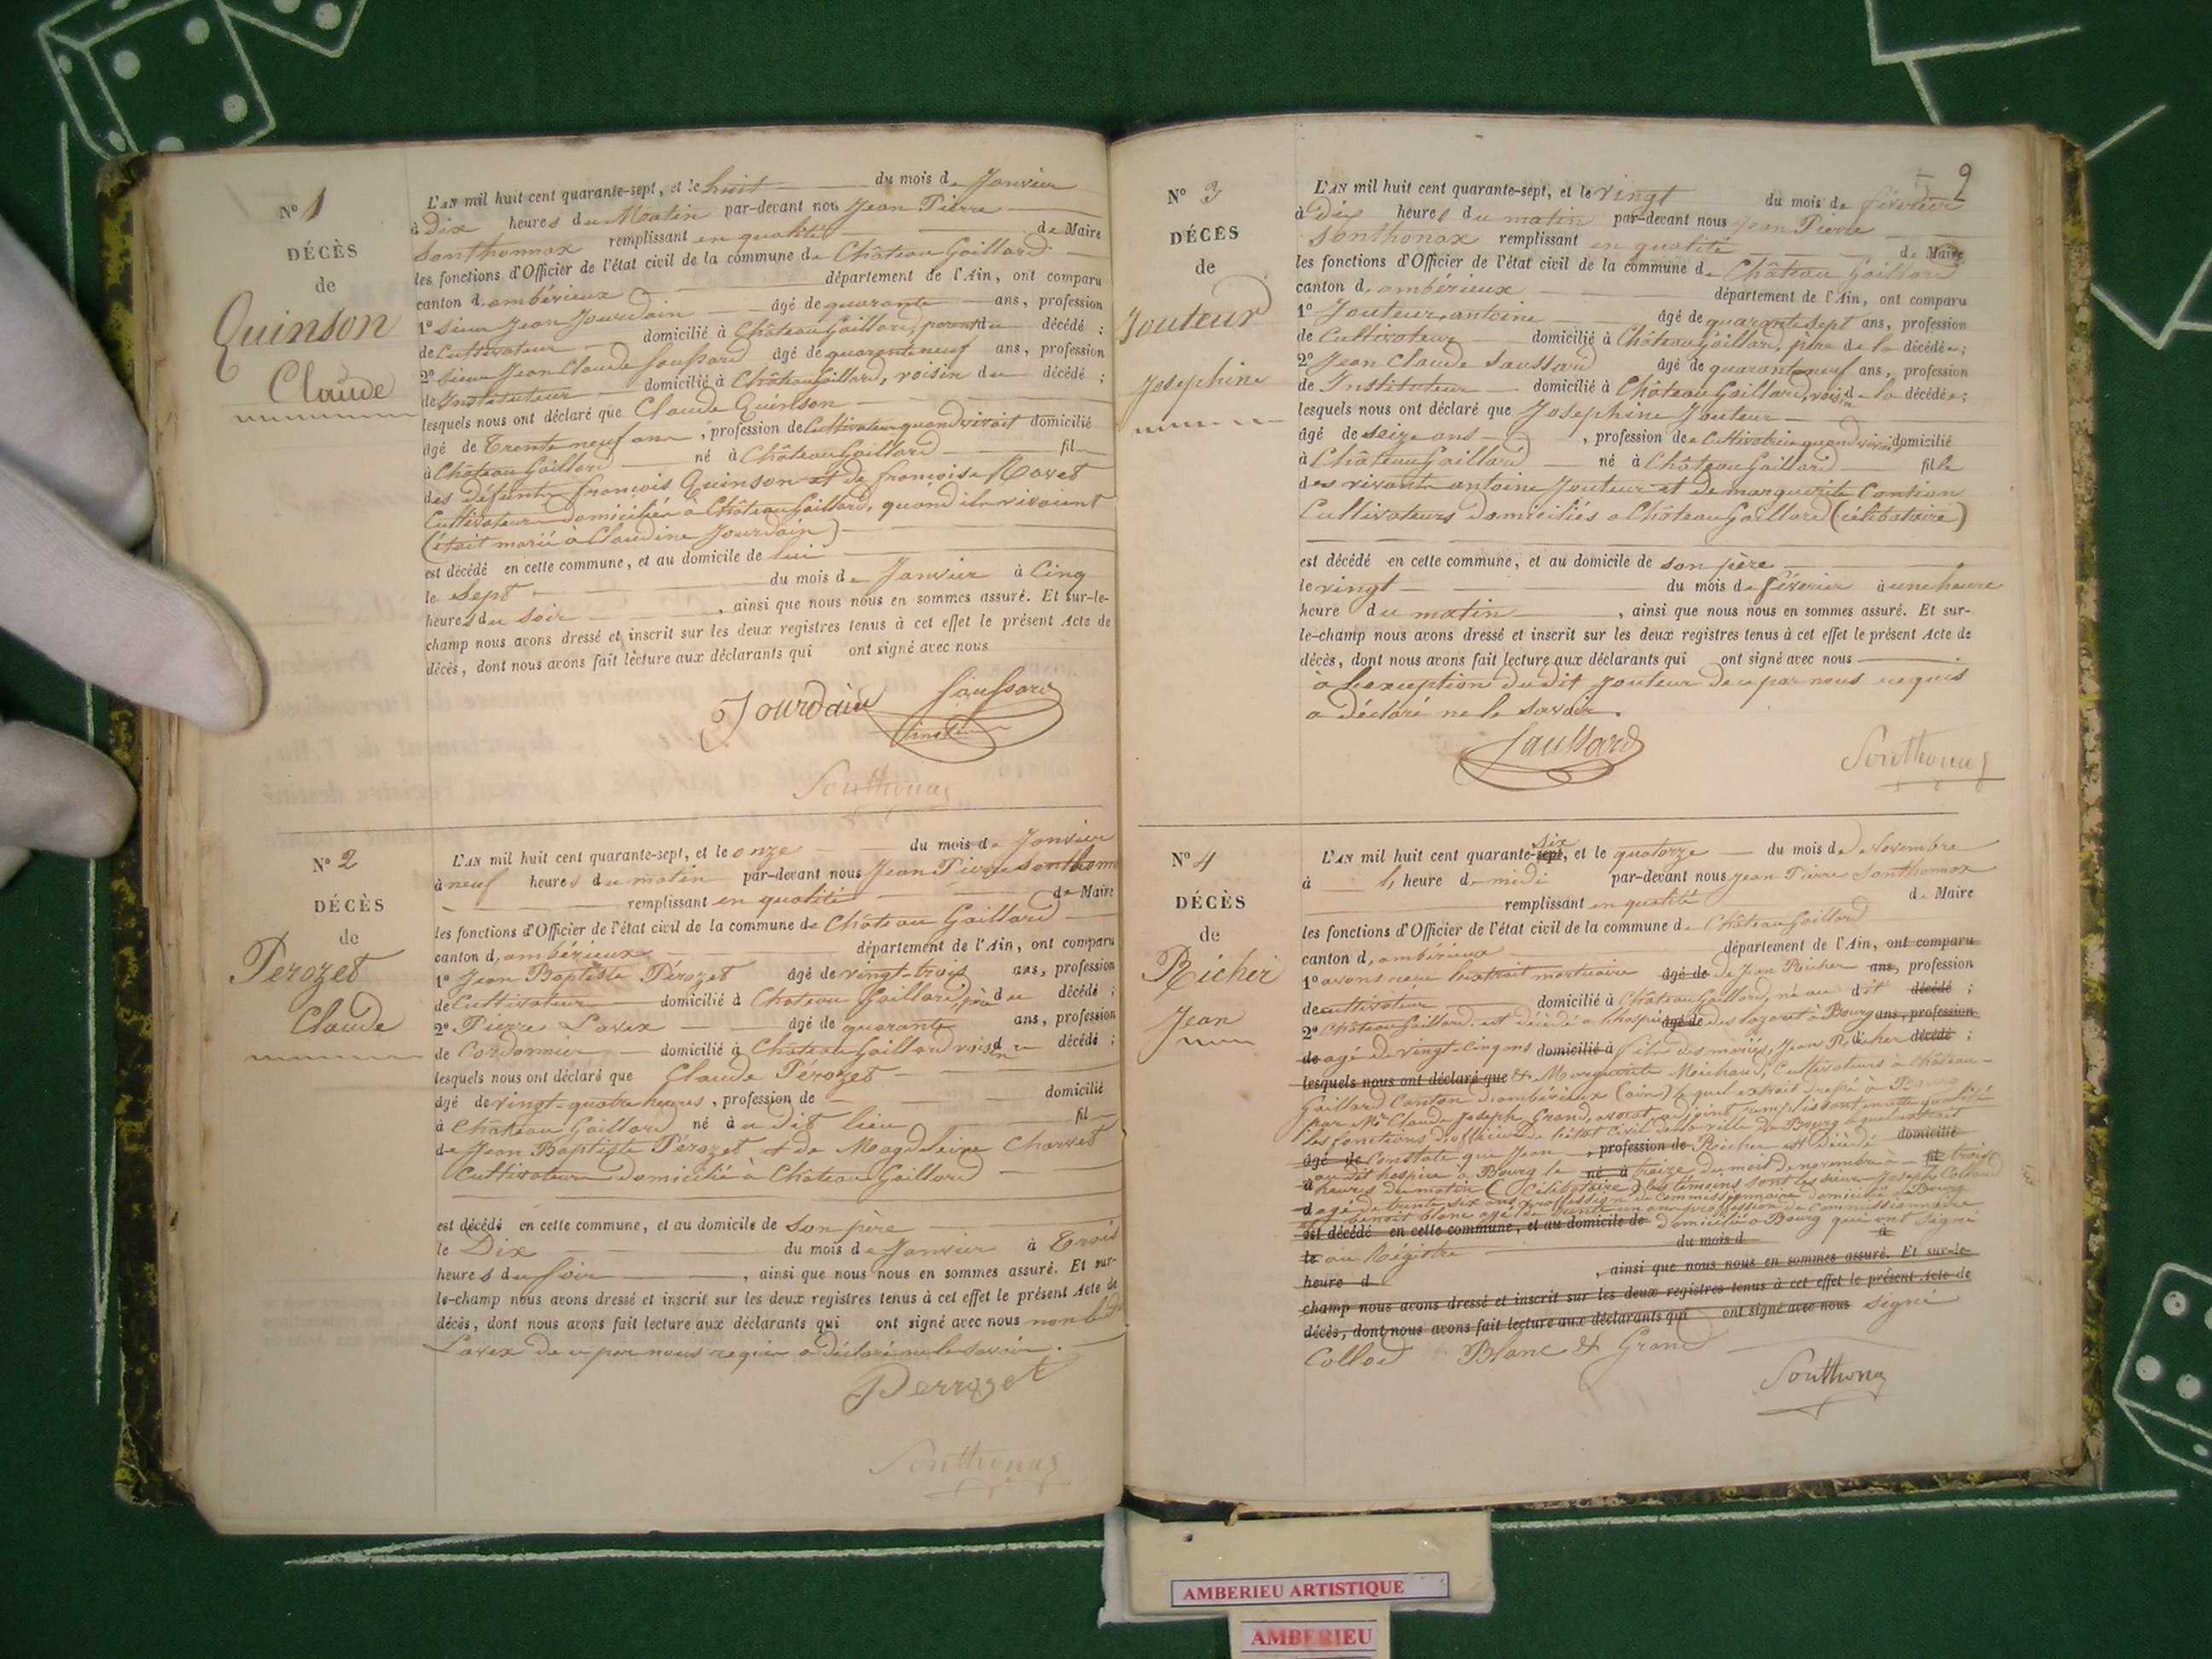 N° 1
DÉCÈS
de
Quinson
Claude
L'AN mil huit cent quarante-sept, et le huit du mois de Janvier
à Dix heures du Matin par-devant nou Jean Pierre
Sonthonnax remplissant en qualité de Maire
les fonctions d'Officier de l'état civil de la commune de Château Gaillard
canton d'ambérieux département de l'Ain, ont comparu
1° Sieur Jean Jourdain âgé de quarante ans, profession
de Cultivateur domicilié à Château Gaillard, parent du décédé ;
2° Sieur Jean Claude Saussard âgé de quarante neuf ans, profession
de Instituteur domicilié à Château Gaillard, voisin du décédé ;
lesquels nous ont déclaré que Claude Quinson
âgé de Trente neuf ans, profession de Cultivateur quand vivait domicilié
à Château Gaillard né à Château Gaillard fil
des défunts francois Quinson et de francoise Ravet
Cultivateurs domiciliés à Château Gaillard, quand ils vivaient
(était marié à Claudine Jourdain)
est décédé en cette commune, et au domicile de lui
le Sept du mois de Janvier à Cinq
heures du soir, ainsi que nous nous en sommes assuré. Et sur-le-
champ nous avons dressé et inscrit sur les deux registres tenus à cet effet le présent Acte de
décès, dont nous avons fait lecture aux déclarants qui ont signé avec nous
Jourdain Saussard
Sonthonax
N° 2
DÉCÈS
de
Perozet
Claude
L'AN mil huit cent quarante-sept, et le onze du mois de Janvier
à neuf heures du matin par-devant nous Jean Pierre Sonthonn
remplissant en qualité de Maire
les fonctions d'Officier de l'état civil de la commune de Château Gaillard
canton d'ambérieux département de l'Ain, ont comparu
1° Jean Baptiste Pérozet âgé de vingt-trois ans, profession
de Cultivateur domicilié à Château Gaillard père du décédé ;
2° Pierre Lavex âgé de quarante ans, profession
de Cordonnier domicilié à Château Gaillard voisin du décédé ;
lesquels nous ont déclaré que Claude Perozet
âgé de vingt-quatre heures, profession de domicilié
à Château Gaillard né à u dit lieu fil
de Jean Baptiste Pérozet et de Magdeleine Charvet
Cultivateurs domicilié à Château Gaillard
est décédé en cette commune, et au domicile de Son père
le Dix du mois de Janvier à Trois
heures du Soir, ainsi que nous nous en sommes assuré. Et sur-
le-champ nous avons dressé et inscrit sur les deux registres tenus à cet effet le présent Acte de
décès, dont nous avons fait lecture aux déclarants qui ont signé avec nous non led
Lavex de ce par nous requis a déclaré ne le savoir.
Perrozet
Sonthonax
2
N° 3
DÉCÈS
de
Jouteur
Josephine
L'AN mil huit cent quarante-sept, et le vingt du mois de février
à Dix heures du matin par-devant nous Jean Pierre
Sonthonax remplissant en qualité de Maire
les fonctions d'Officier de l'état civil de la commune de Château Gaillard
canton d'ambérieux département de l'Ain, ont comparu
1° Jouteur antoine âgé de quarante sept ans, profession
de Cultivateur domicilié à Château Gaillard, père de la décédée ;
2° Jean Claude Saussard âgé de quarante neuf ans, profession
de Instituteur domicilié à Château Gaillard, voisin de la décédée ;
lesquels nous ont déclaré que Josephine Jouteur
âgé de seize ans, profession de Cultivatrice quand vivait domicilié
à Château Gaillard né à Château Gaillard fille
des vivants antoine Jouteur et de marguerite Contion
Cultivateurs domiciliés a Château Gaillard (célibataire)
est décédé en cette commune, et au domicile de son père
le vingt du mois de février à une heure
heure du matin, ainsi que nous nous en sommes assuré. Et sur-
le-champ nous avons dressé et inscrit sur les deux registres tenus à cet effet le présent Acte de
décès, dont nous avons fait lecture aux déclarants qui ont signé avec nous
à l'exception dudit Jouteur de ce par nous requis
a déclaré ne le savoir.
Saussard Sonthonax
N° 4
DÉCÈS
de
Richer
Jean
L'AN mil huit cent quarante-sept six, et le quatorze du mois de Novembre
à heure de midi par-devant nous Jean Pierre Sonthonax
remplissant en qualité de Maire
les fonctions d'Officier de l'état civil de la commune de Château Gaillard
canton d'ambérieux département de l'Ain, ont comparu
1° avons reçu l'extrait mortuaire âgé de de Jean Richer ans, profession
de cultivateur domicilié à Château Gaillard, né au dit décédé ;
2° Château Gaillard est décédé a l'hospice âgé de des lazaret à Bourg ans, profession
de agé de vingt-cinq ans domicilié à fils des mariés Jean Richer décédé ;
lesquels nous ont déclaré que et Marguerite Meichaud, Cultivateurs à Château-
Gaillard Canton d'ambérieux (ain) lequel extrait dressé à Bourg
par Mr Claude Joseph Grand, avocat adjoint remplissant en cette qualité
les fonctions d'officier de l'état civil de la ville de Bourg lequel extrait
âgé de Constate que Jean, profession de Richer est décédé domicilié
au dit hospice à Bourg le né à treize du mois de novembre à fil trois
à heures du matin (Célibataire) les témoins sont les sieurs Joseph Collod
d agé de trente six ans, profession de Commissionnaire domicilié à Bourg
et benoit blanc agé de trente un ans profession de Commissionnaire
est décédé en cette commune, et au domicile de domicilié a Bourg qui ont signé
le au Régistre du mois d à
heure d, ainsi que nous nous en sommes assuré. Et sur-le-
champ nous avons dressé et inscrit sur les deux registres tenus à cet effet le présent Acte de
décès, dont nous avons fait lecture aux déclarants qui ont signé avec nous signé
Collod Blanc & Grand
Sonthonax
AMBERIEU ARTISTIQUE
AMBERIEU